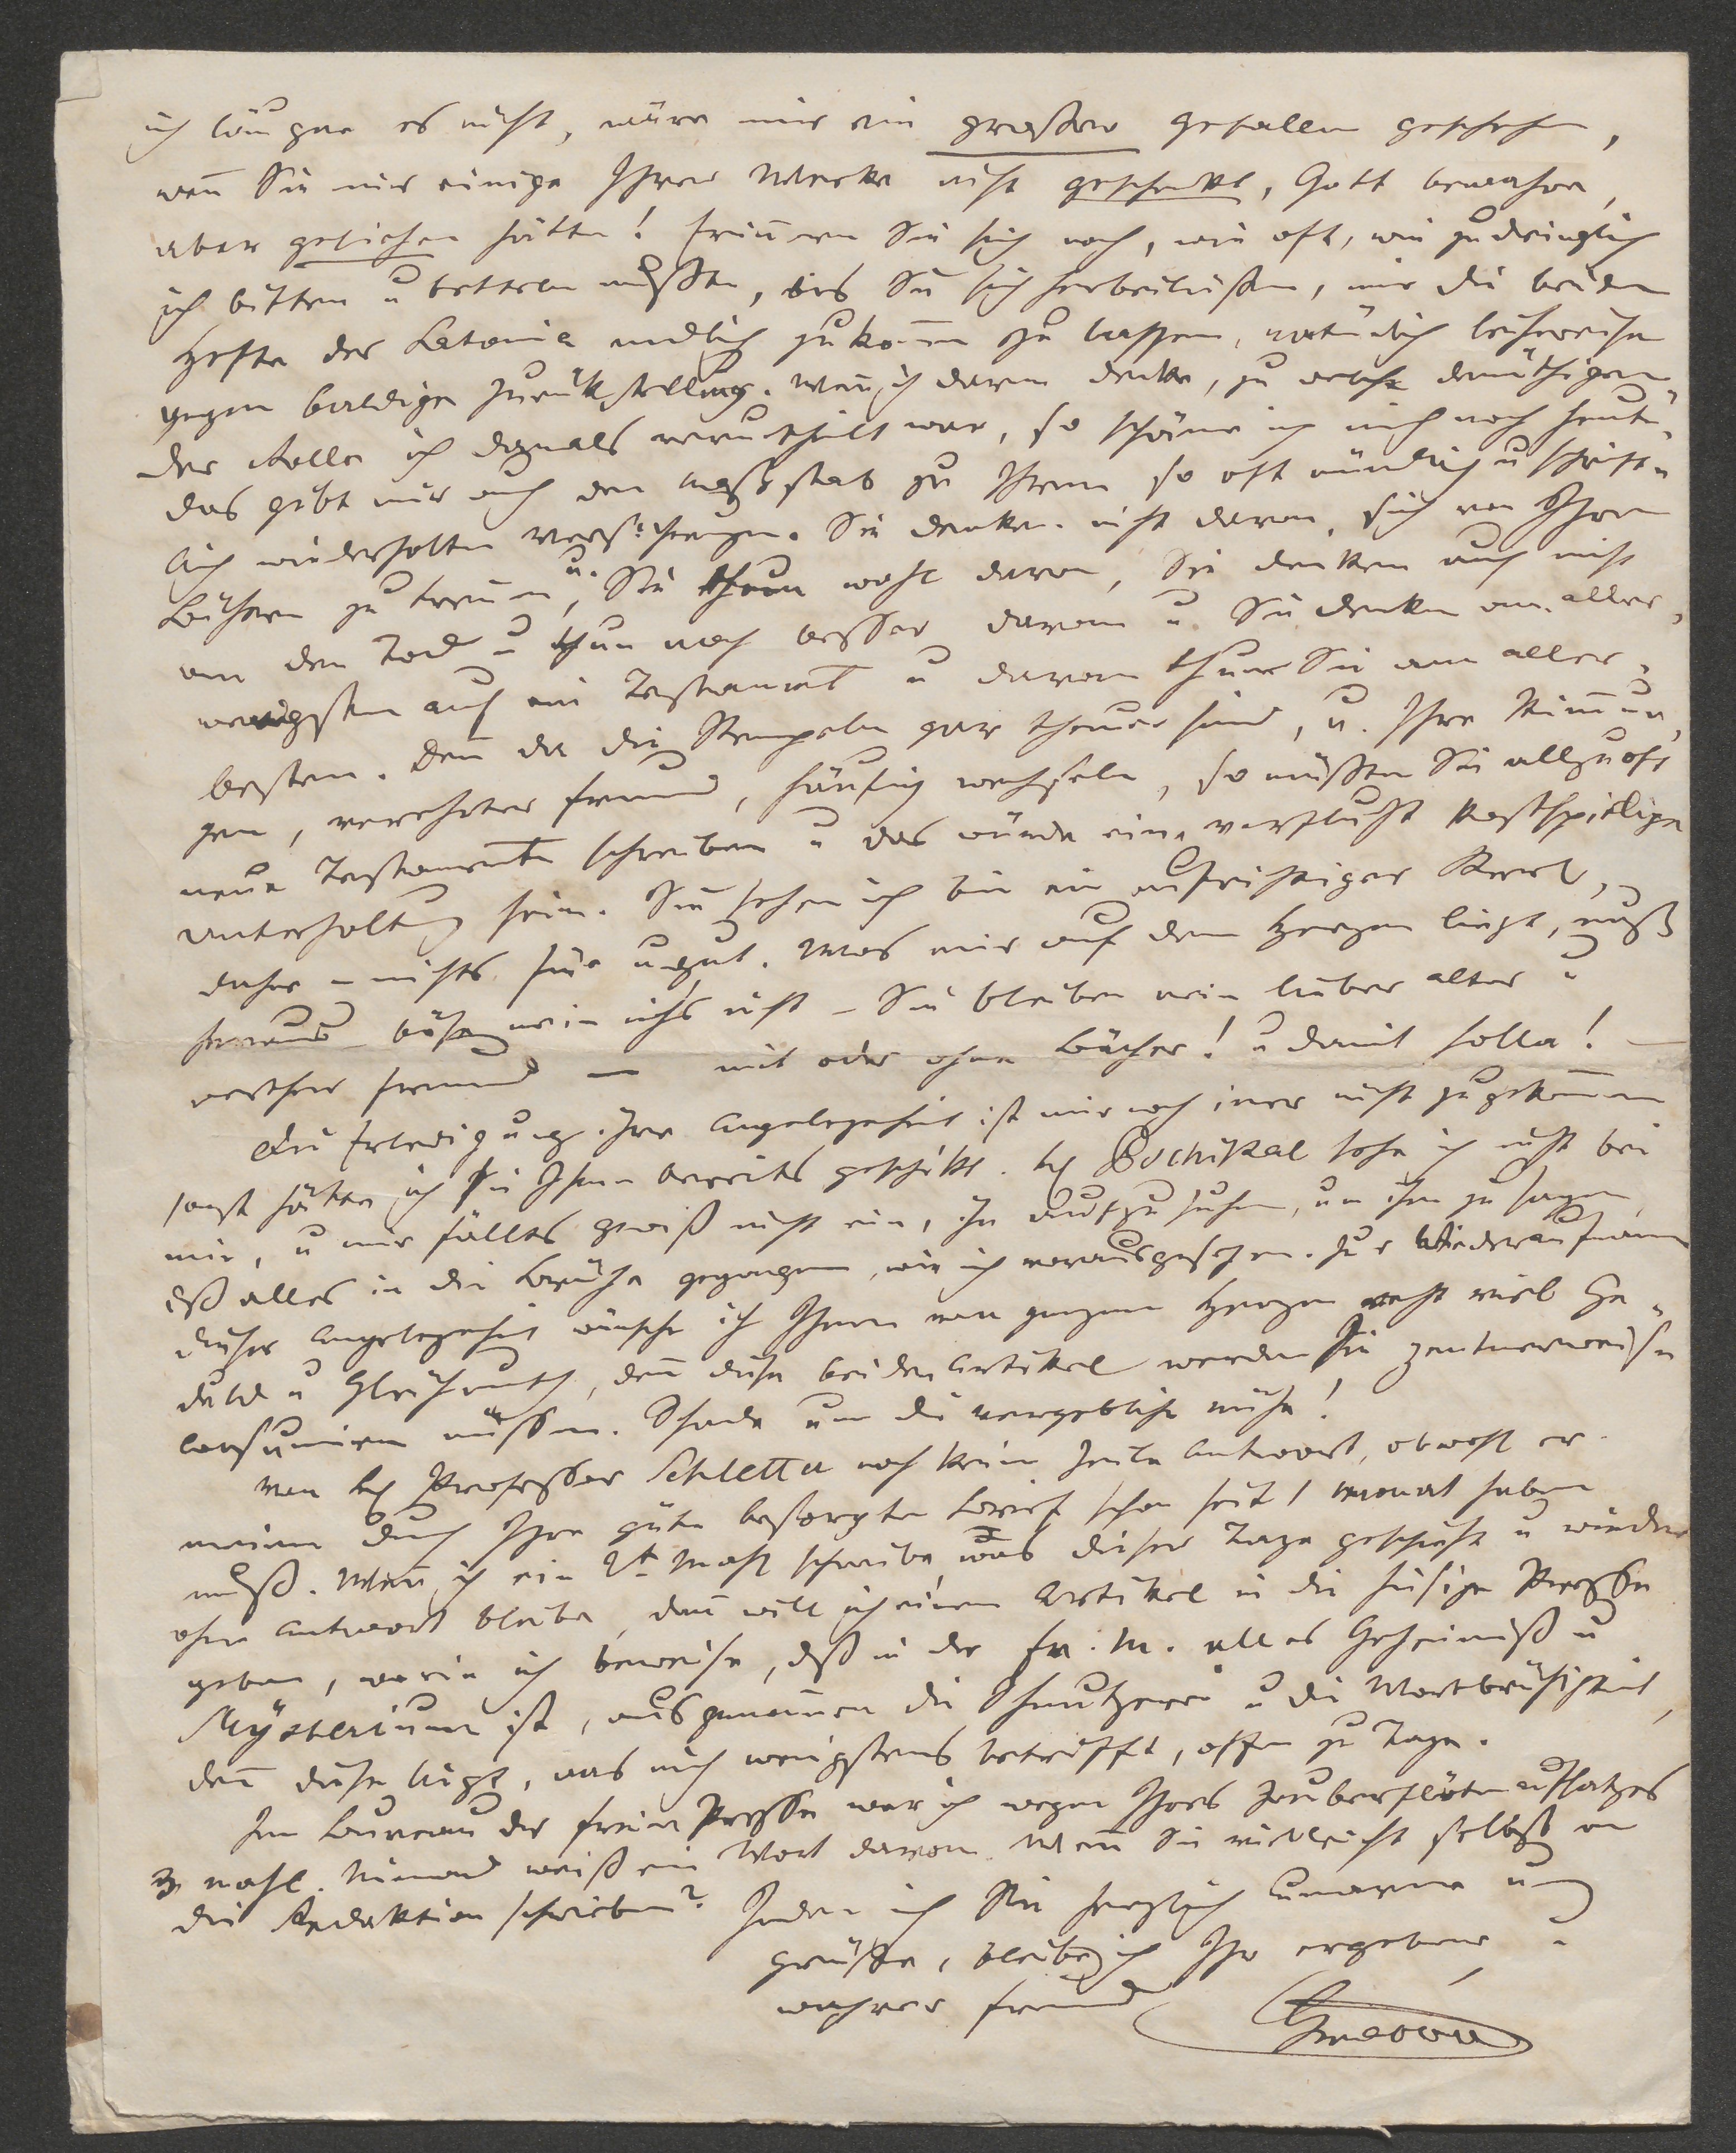 ich läugne es nicht, wäre mir ein großer Gefallen geschehen,
wenn Sie mir einige Ihrer Werke nicht geschenkt, Gott bewahre,
aber geliehen hätten! Erinnern Sie sich noch, wie oft, wie zudringlich
ich bitten u betteln mußte, bis Sie sich herbeiließen, mir die beiden
Hefte der Latomia endlich zukomen zu lassen, natürlich leihweise
gegen baldige Zurükstellung. Wenn ich daran denke, zu welcher demüthigen=
der Rolle ich damals verurtheilt war, so schäme ich mich noch heute.
das gibt mir auch den Maßstab zu Ihren so oft mündlich u schrift=
lich wiederholten Versicherungen. Sie denken nicht daran, sich von Ihren
Büchern zu trennen, u. Sie thun wohl daran, Sie denken auch nicht
an den Tod u thun noch besser daran u. Sie denken am aller=
wenigsten auf ein Testament u daran thun Sie am aller=
besten. Denn da die Stempeln gar theuer sind, u. Ihre Stimun=
gen, verehrter Freund, häufig wechseln, so müßten Sie allzuoft
neue Testamente schreiben u das würde eine verflucht kostspielige
Unterhaltung sein. Sie sehen ich bin ein aufrichtiger Kerl,
daher – nichts für ungut. Was mir auf dem Herzen liegt, muß
heraus – böse mein ichs nicht – Sie bleiben mein lieber alter u
werther Freund — mit oder ohne Bücher! u damit holla! —
Die Erledigung Ihrer Angelegenheit ist mir noch imer nicht zugekommen
sonst hätte ich sie Ihnen bereits geschikt. H Bochikal sehe ich nicht bei
mir, u mir fällts gewiß nicht ein, ihn aufzusuchen, um ihm zu sagen,
daß alles in die Brüche gegangen, wie ich vorausgesehen. Zur Wiederaufnam
dieser Angelegenheit wünsche ich Ihnen von ganzem Herzen recht viel Ge=
duld u Gleichmuth, denn diese beiden Artikel werden Sie zentnerweise
consumiren müssen. Schade um die vergebliche Mühe!
Von H Professor Schletter noch keine Zeile Antwort, obwohl er
meinen durch Ihre Güte besorgten Brief schon seit 1 Monat haben
muß. Wenn ich ein 2t Mahl schreibe, was dieser Tage geschieht u wieder
ohne Antwort bleibe, dann will ich einen Artikel in die hiesige Presse
geben, worin ich beweise, daß in der Fr. M. alles Geheimniß u
Mysterium ist, ausgenomen die Schmutzerei u die Wortbrüchigkeit,
denn diese liegt, was mich wenigstens betrifft, offen zu Tage.
Im Bureau der freien Presse war ich wegen Ihres Zauberflötenaufsatzes
3 mahl. Niemand weiß ein Wort davon. Wenn Sie vielleicht selbst an
die Redaktion schrieben? Indem ich Sie herzlich umarme und
grüße, bleibe ich Ihr ergebener u
wahrer Freund